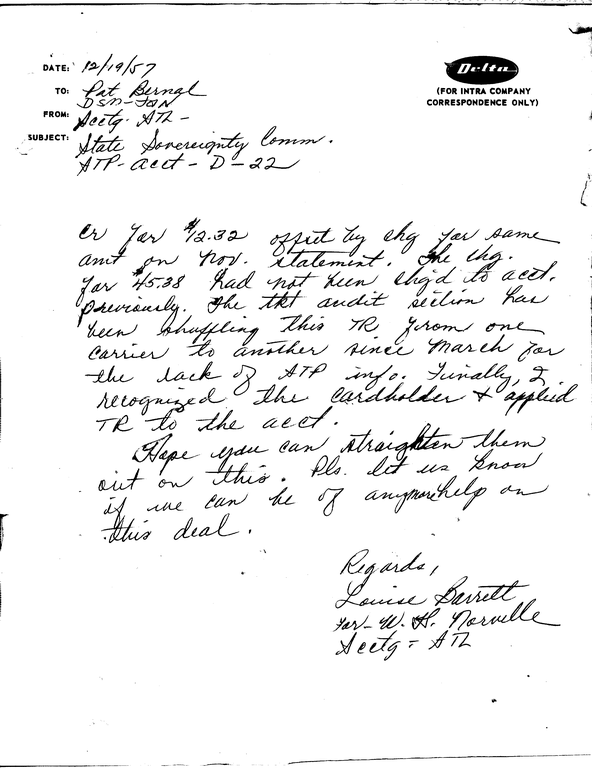 Delta
(FOR INTRA COMPANY
CORRESPONDENCE ONLY)
DATE: 12/19/57
TO: Pat Bernal
DSM-JAN
FROM: Acctg. ATL -
SUBJECT: State Sovereignty Comm.
ATP-acct - D-22
Cr for $12.32 offset by chg for same
amt on Nov. statement. The chg.
for $45.38 had not been chg'd to acct.
previously. The tkt audit section has
been shuffling this TR from one
carrier to another since March for
the lack of ATP info. Finally, I
recognized the cardholder & applied
TR to the acct.
Hope you can straighten them
out on this. Pls. let us know
if we can be of anymore help on
this deal.
Regards,
Louise Barrett
for - W. H. Norville
Acctg - ATL